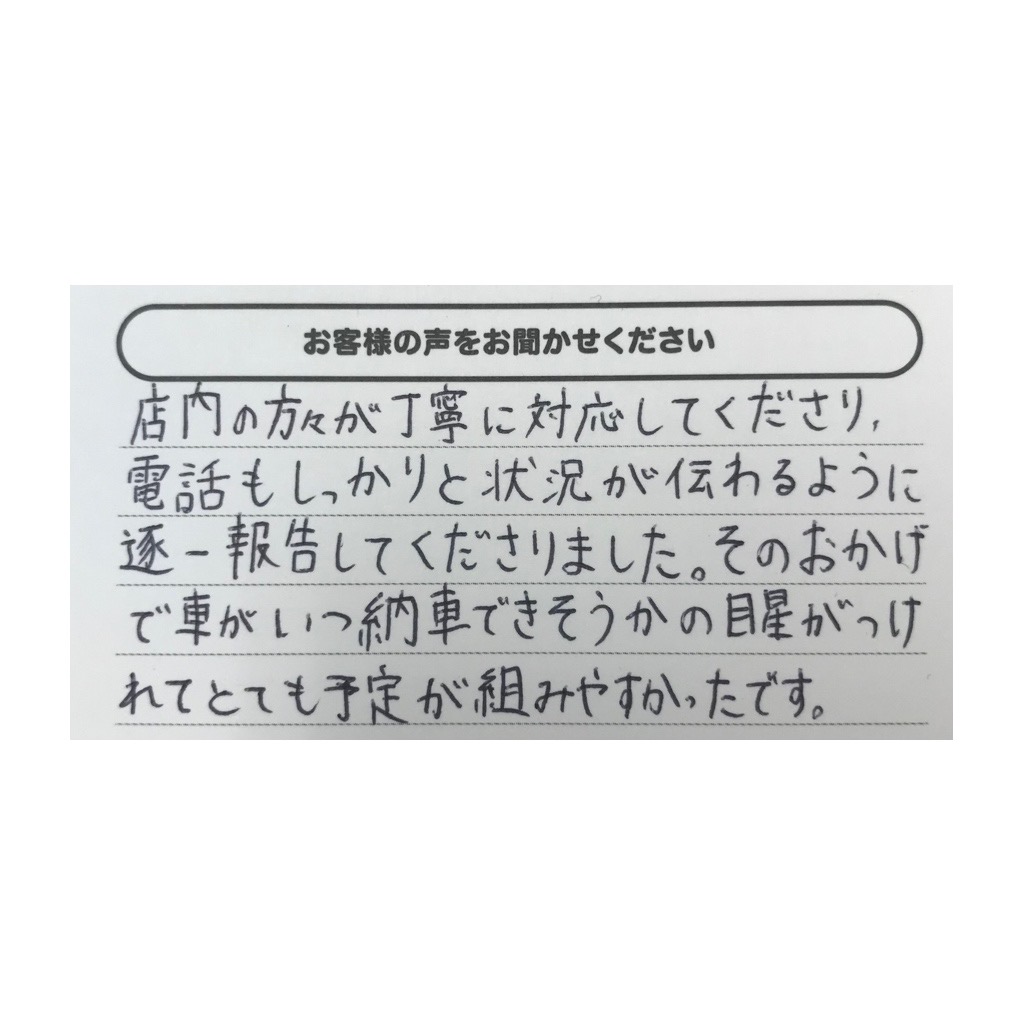 お客様の声をお聞かせください
店内の方々が丁寧に対応してくださり,
電話もしっかりと状況が伝わるように
逐一報告してくださりました。そのおかげ
で車がいつ納車できそうかの目星がつけ
れてとても予定が組みやすかったです。